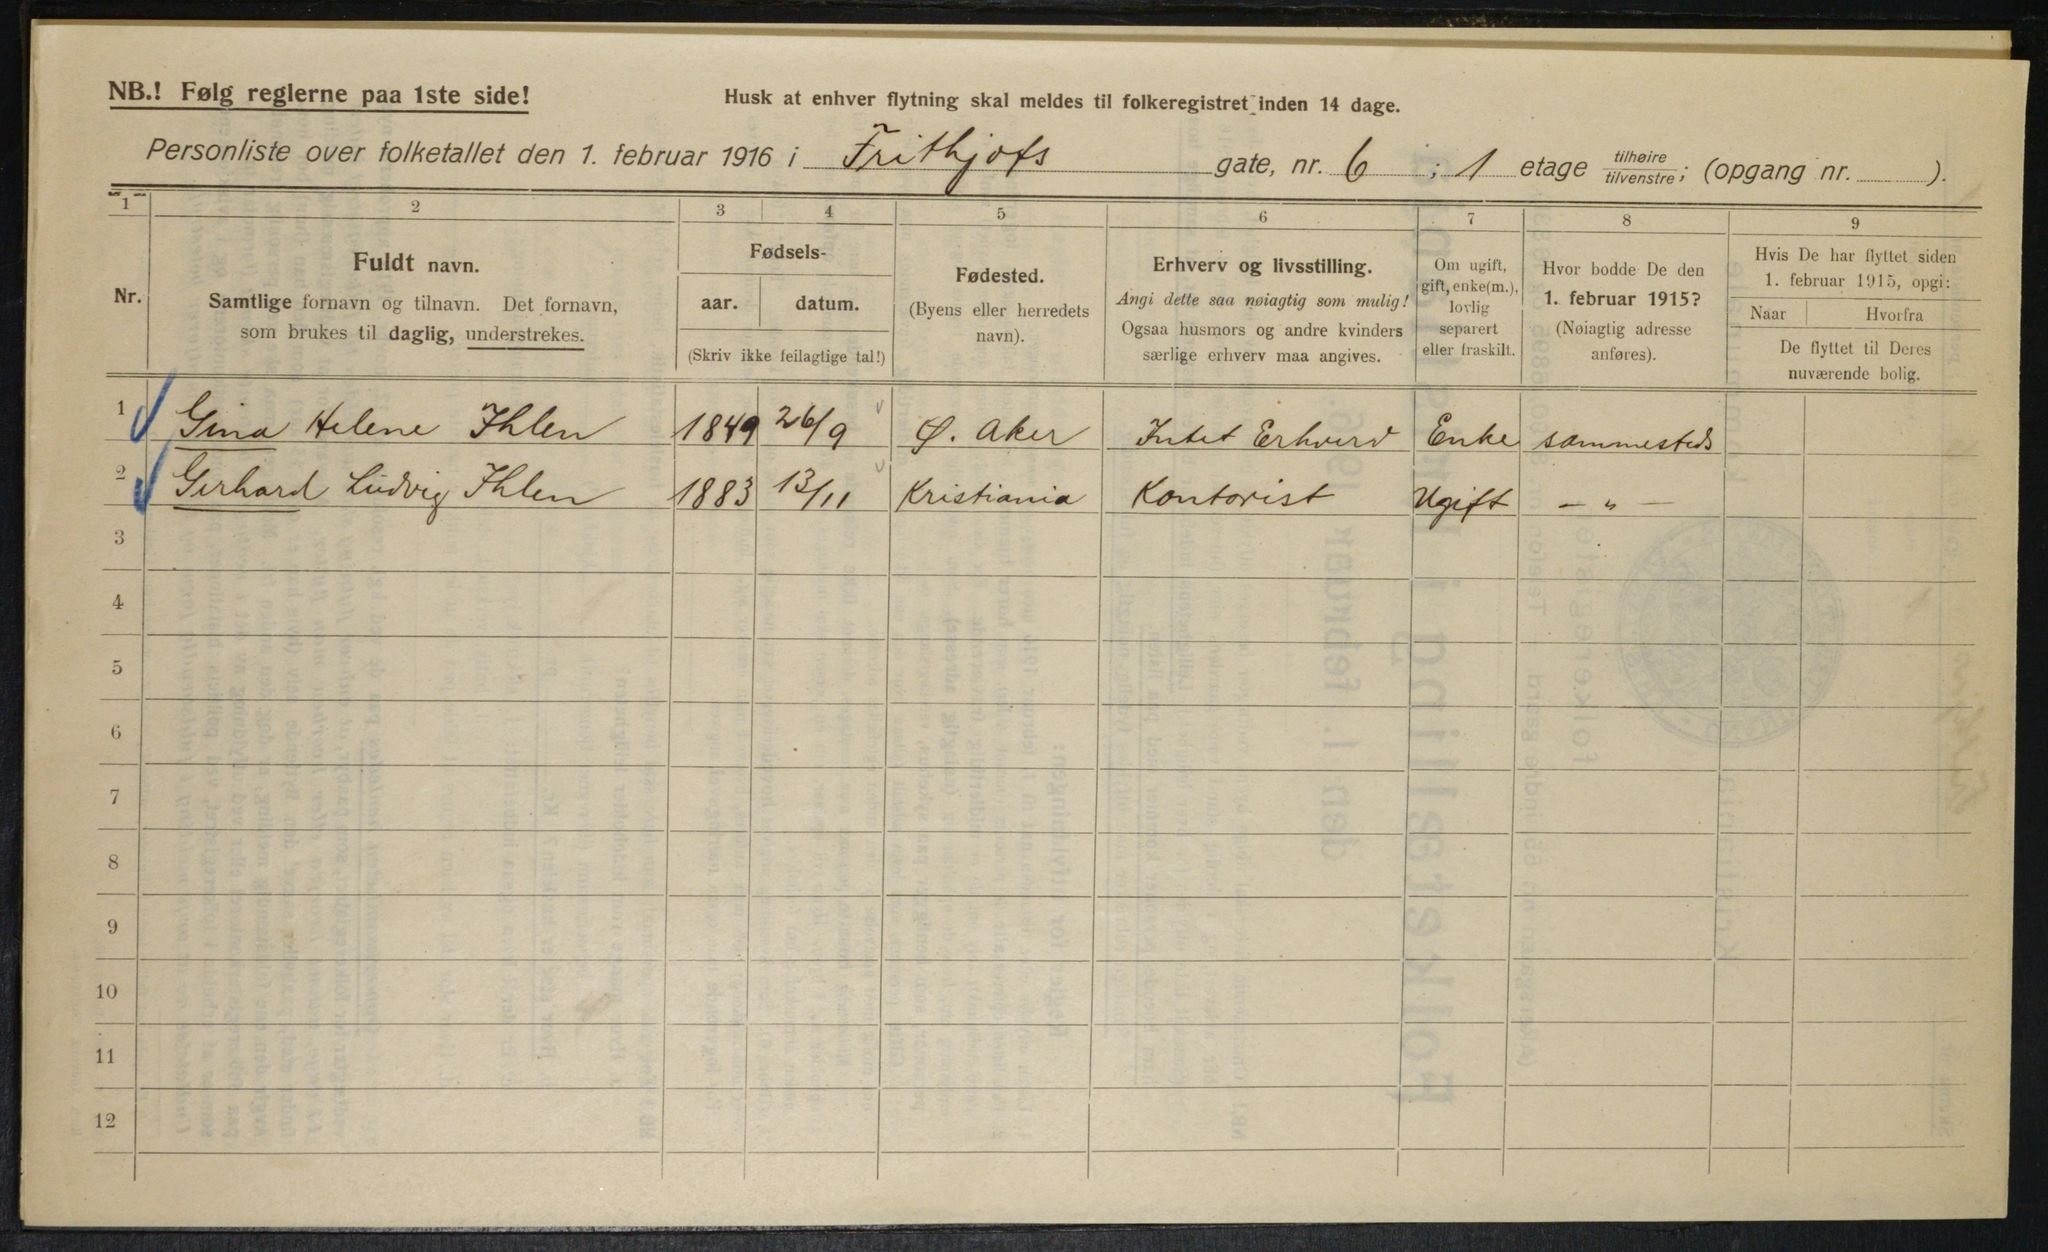 NB.! Følg reglerne paa 1ste side!
Husk at enhver flytning skal meldes til folkeregistret inden 14 dage.
Personliste over folketallet den 1. februar 1916 i Frithjofs gate, nr. 6 ; 1 etage tilhøire tilvenstre; (opgang nr. ).
1 2 3 4 5 6 7 8 9
Nr.
Fuldt navn.
Samtlige fornavn og tilnavn. Det fornavn,
som brukes til daglig, understrekes.
Fødsels-
aar. datum.
(Skriv ikke feilagtige tal!)
Fødested.
(Byens eller herredets
navn).
Erhverv og livsstilling.
Angi dette saa nøiagtig som mulig!
Ogsaa husmors og andre kvinders
særlige erhverv maa angives.
Om ugift,
gift, enke(m.),
lovlig
separert
eller fraskilt.
Hvor bodde De den
1. februar 1915?
(Nøiagtig adresse
anføres).
Hvis De har flyttet siden
1. februar 1915, opgi:
Naar Hvorfra
De flyttet til Deres
nuværende bolig.
1 Gina Helene Ihlen 1849 26/9 Ø. Aker Intet Erhverv Enke sammesteds
2 Gerhard Ludvig Ihlen 1883 13/11 Kristiania Kontorist Ugift — „ —
3
4
5
6
7
8
9
10
11
12